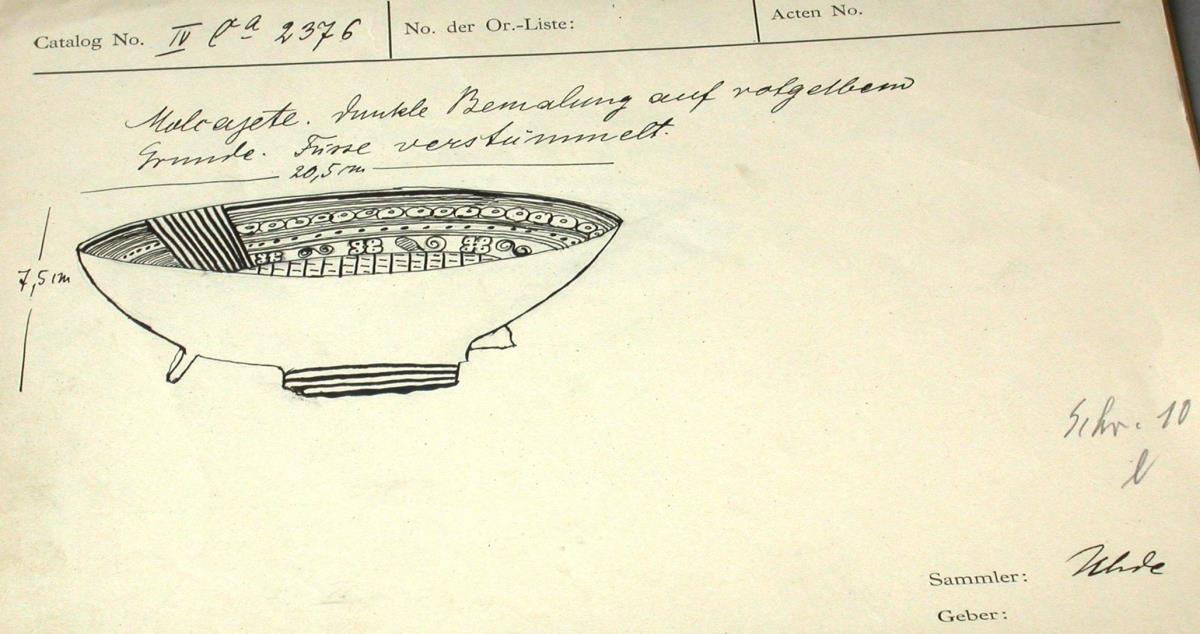 Catalog No. IV Ca 2376
No. der Or.-Liste:
Acten No.
Molcajete. Dunkle Bemalung auf rotgelbem
Grunde. Füsse verstümmelt.
20,5 cm
7,5 cm
Schr. 10
l
Sammler: Uhde
Geber: